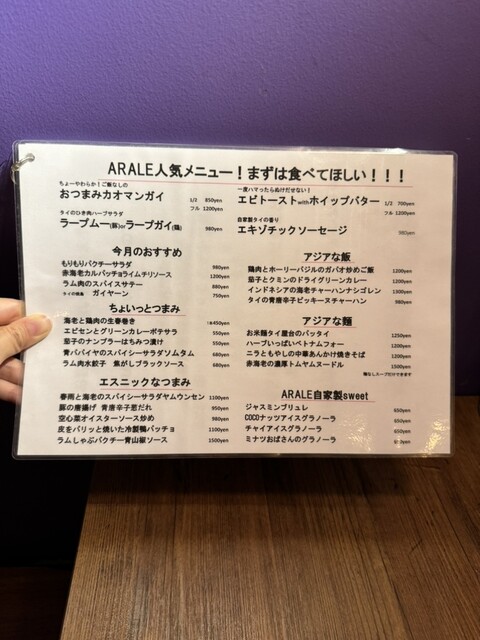 ARALE人気メニュー！まずは食べてほしい！！！
ちょーやわらか！ご飯なしの
おつまみカオマンガイ 1/2 850yen
フル 1200yen
タイのひき肉ハーブサラダ
ラープムー(豚)orラープガイ(鶏) 980yen
一度ハマったらぬけだせない！
エビトーストwithホイップバター 1/2 700yen
フル 1200yen
自家製タイの香り
エキゾチックソーセージ 980yen
今月のおすすめ
もりもりパクチーサラダ 980yen
赤海老カルパッチョライムチリソース 1200yen
ラム肉のスパイスサテー 880yen
タイの焼鳥 ガイヤーン 750yen
ちょいっとつまみ
海老と鶏肉の生春巻き 1本450yen
エビセンとグリーンカレーポテサラ 550yen
茄子のナンプラーはちみつ漬け 550yen
青パパイヤのスパイシーサラダソムタム 680yen
ラム肉水餃子 焦がしブラックソース 680yen
エスニックなつまみ
春雨と海老のスパイシーサラダヤムウンセン 1100yen
豚の唐揚げ 青唐辛子葱だれ 950yen
空心菜オイスターソース炒め 980yen
皮をパリッと焼いた冷製鴨パッチョ 1100yen
ラムしゃぶパクチー青山椒ソース 1500yen
アジアな飯
鶏肉とホーリーバジルのガパオ炒めご飯 1200yen
茄子とクミンのドライグリーンカレー 1200yen
インドネシアの海老チャーハンナシゴレン 1300yen
タイの青唐辛子ピッキーヌチャーハン 980yen
アジアな麺
お米麺タイ屋台のパッタイ 1250yen
ハーブいっぱいベトナムフォー 1200yen
ニラともやしの中華あんかけ焼きそば 1200yen
赤海老の濃厚トムヤムヌードル 1500yen
麺なしスープだけできます
ARALE自家製sweet
ジャスミンブリュレ 650yen
COCOナッツアイスグラノーラ 650yen
チャイアイスグラノーラ 650yen
ミナツおばさんのグラノーラ